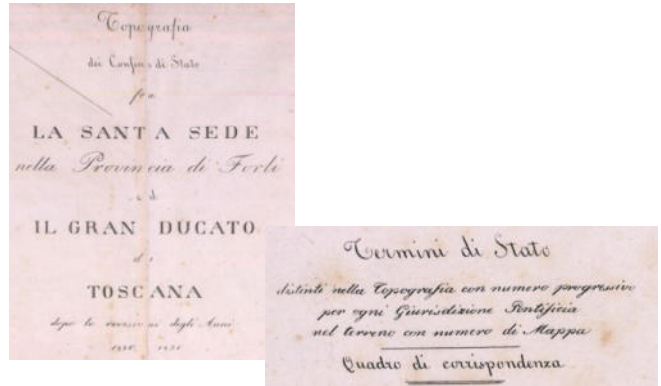 Topografia
dei Confini di Stato
fra
LA SANTA SEDE
nella Provincia di Forlì
ed
IL GRAN DUCATO
di
TOSCANA
dopo le degli Anni
Termini di Stato
distinti nella Topografia con numero progressivo
per ogni Giurisdizione Pontificia
nel terreno con numero di Mappa
Quadro di corrispondenza